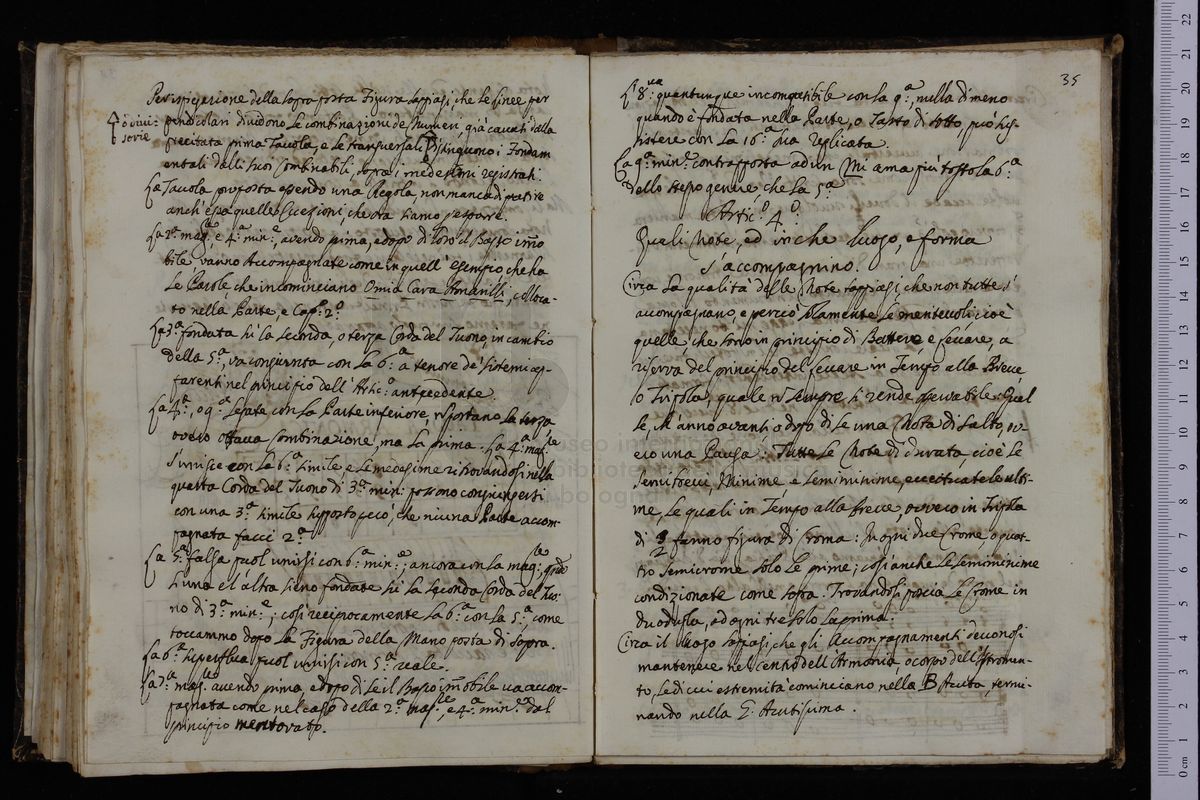 Per ispiegazione della sopra posta Figura sappiasi, che le linee per
ò vivi: pendicolari dividono le combinazioni de Numeri, già cavati dalla
serie precitata prima Tavola, e le transversali distinguono i Fondam
entali dalli suoi Combinabili, sopra i medesimi registrati.
La Tavola proposta essendo una Regola, non manca di patire
anch'essa quelle Eccezioni, che ora siamo per esporre.
La 2ª mag:re e 4ª min:re, avendo prima, e dopo di loro il Basso im̃o
bile, vanno Accompagnate come in quell' esempio che ha
Le Parole, che incominciano Omia Cara Amarilli, colloca-
to nella Parte, e Cap:º 2º
La 3ª fondata sù la seconda, o terza Corda del Tuono, in cambio
della 5ª, và congiunta con la 6ª a tenore de' sistemi ap-
parenti nel principio dell' Artic:º antecedente.
La 4ª, o 9ª legate con la Parte inferiore, non portano la terza
overo ottava Combinazione, ma la prima. La 4ª mag:re
s'unisce con la 6ª simile e le medesime ritrovandosi nella
quarta Corda del Tuono di 3ª min: possono congiungersi
con una 3ª simile supposto però, che niuna Parte accom-
pagnata facci 2ª
La 5ª falsa puol unirsi con 6ª min:re; ancora con la mag:re, quãdo
l'una e l'altra sieno fondate sù la seconda Corda del Tuo-
no di 3ª min:re; così reciprocamente la 6ª con la 5ª, come
toccammo dopo la Figura della Mano posta di sopra.
La 6ª superflua puol unirsi con 5ª reale.
La 7ª mag:re avendo prima, e dopo di se il Basso im̃obile và accom-
pagnata come nel caso della 2ª mag:re, e 4ª min:re dal
principio mentovato.
35
L' 8:va quantunque incompatibile con la 9ª, nulla di meno
quando è fondata nella Parte, o Tasto di sotto, può sus-
sistere con la 16ª sua replicata.
La 9ª min:re contrapposta ad un Mi ama più tosto la 6ª
dello stesso genere che la 5ª
Artic:º 4º
Quali Note, ed in che luogo, e forma
s'accompagnino.
Circa la qualità delle Note sappiasi, che non tutte s'
accompagnano, e perciò solamente le mentevoli cioè
quelle, che sono in principio di Battere, e levare, a
riserva del principio del levare in Tempo alla Breve
o Tripola, quale non sempre si rende osservabile. Qual
le, ch'anno avanti o dopo di se una Nota di salto, ov-
ero una Pausa: Tutte le Note di durata, cioè le
Semibrevi, Minime, e Semiminime, eccettuate le ulti-
me, le quali in Tempo alla breve, ovvero in Tripola
di 3/2 fanno figura di Croma: In ogni due Crome, o quat-
tro Semicrome solo le prime; così anche le semiminime
condizionate come sopra. Trovandosi poscia le Crome in
Duodupla, ad ogni tre solo la prima.
Circa il luogo sappiasi, che gli Accompagnamenti devonsi
mantenere nel centro dell'Armonia o corpo dell'Istromen-
to, le di cui estremità cominciano nella B Acuta, termi-
nando nella E Acutissima.